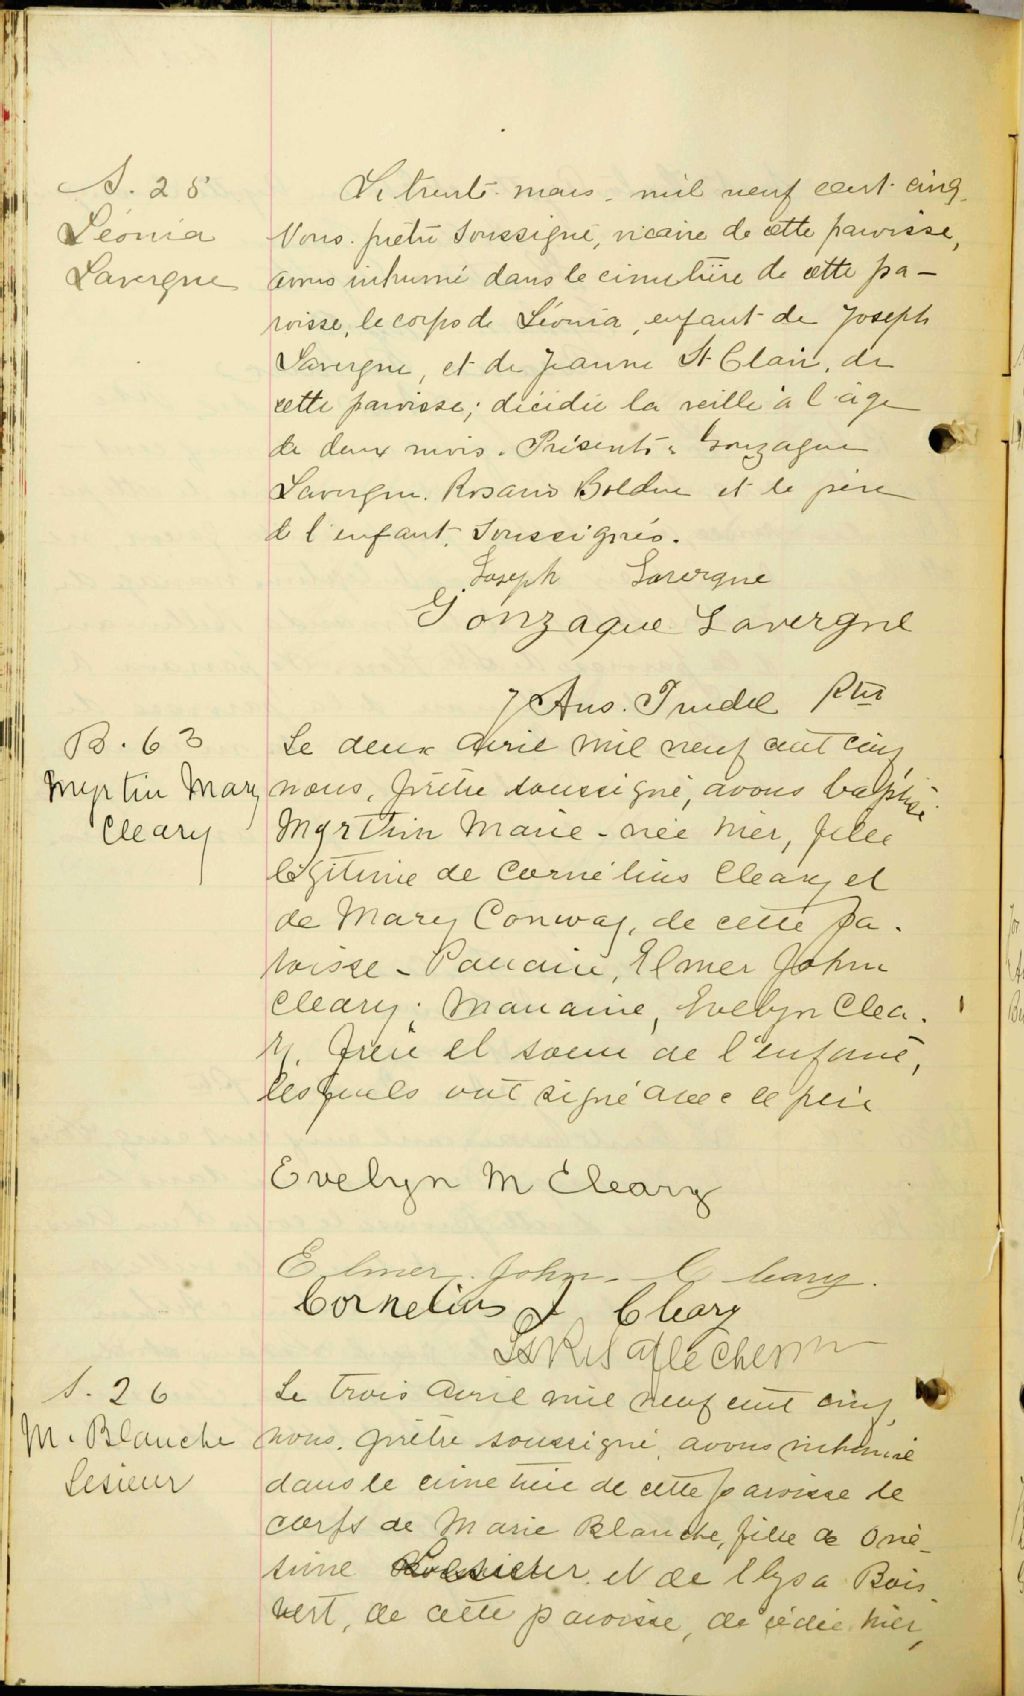 S. 25
Léonia
Lavergne
Le trente mars mil neuf cent cinq
Nous prêtre soussigné, vicaire de cette paroisse,
avons inhumé dans le cimetière de cette pa-
roisse, le corps de Léonia, enfant de Joseph
Lavergne, et de Jeanne St Clair, de
cette paroisse; décédée la veille à l'âge
de deux mois. Présents: Gonzague
Lavergne. Rosario Bolduc et le père
de l'enfant, soussignés.
Joseph Lavergne
Gonzague Lavergne
J Ans. Trudel Ptre
B. 63
Myrtin Mary
Cleary
Le deux avril mil neuf cent cinq
nous, prêtre soussigné, avons baptisé
Myrthin Marie - née hier, fille
légitime de Cornélius Cleary et
de Mary Conway, de cette pa-
roisse - Parrain, Elmer John
Cleary; Marraine, Evelyn Clea-
ry, frère et soeur de l'enfant,
lesquels ont signé avec le père
Evelyn M Cleary
Elmer. John. Cleary.
Cornelius J Cleary
S. 26
M. Blanche
Lesieur
Le trois avril mil neuf cent cinq,
nous, prêtre soussigné, avons inhumé
dans le cimetière de cette paroisse le
corps de Marie Blanche, fille de Oné-
sime Lesieur et de Elysa Bois
vert, de cette paroisse, décédée hier,